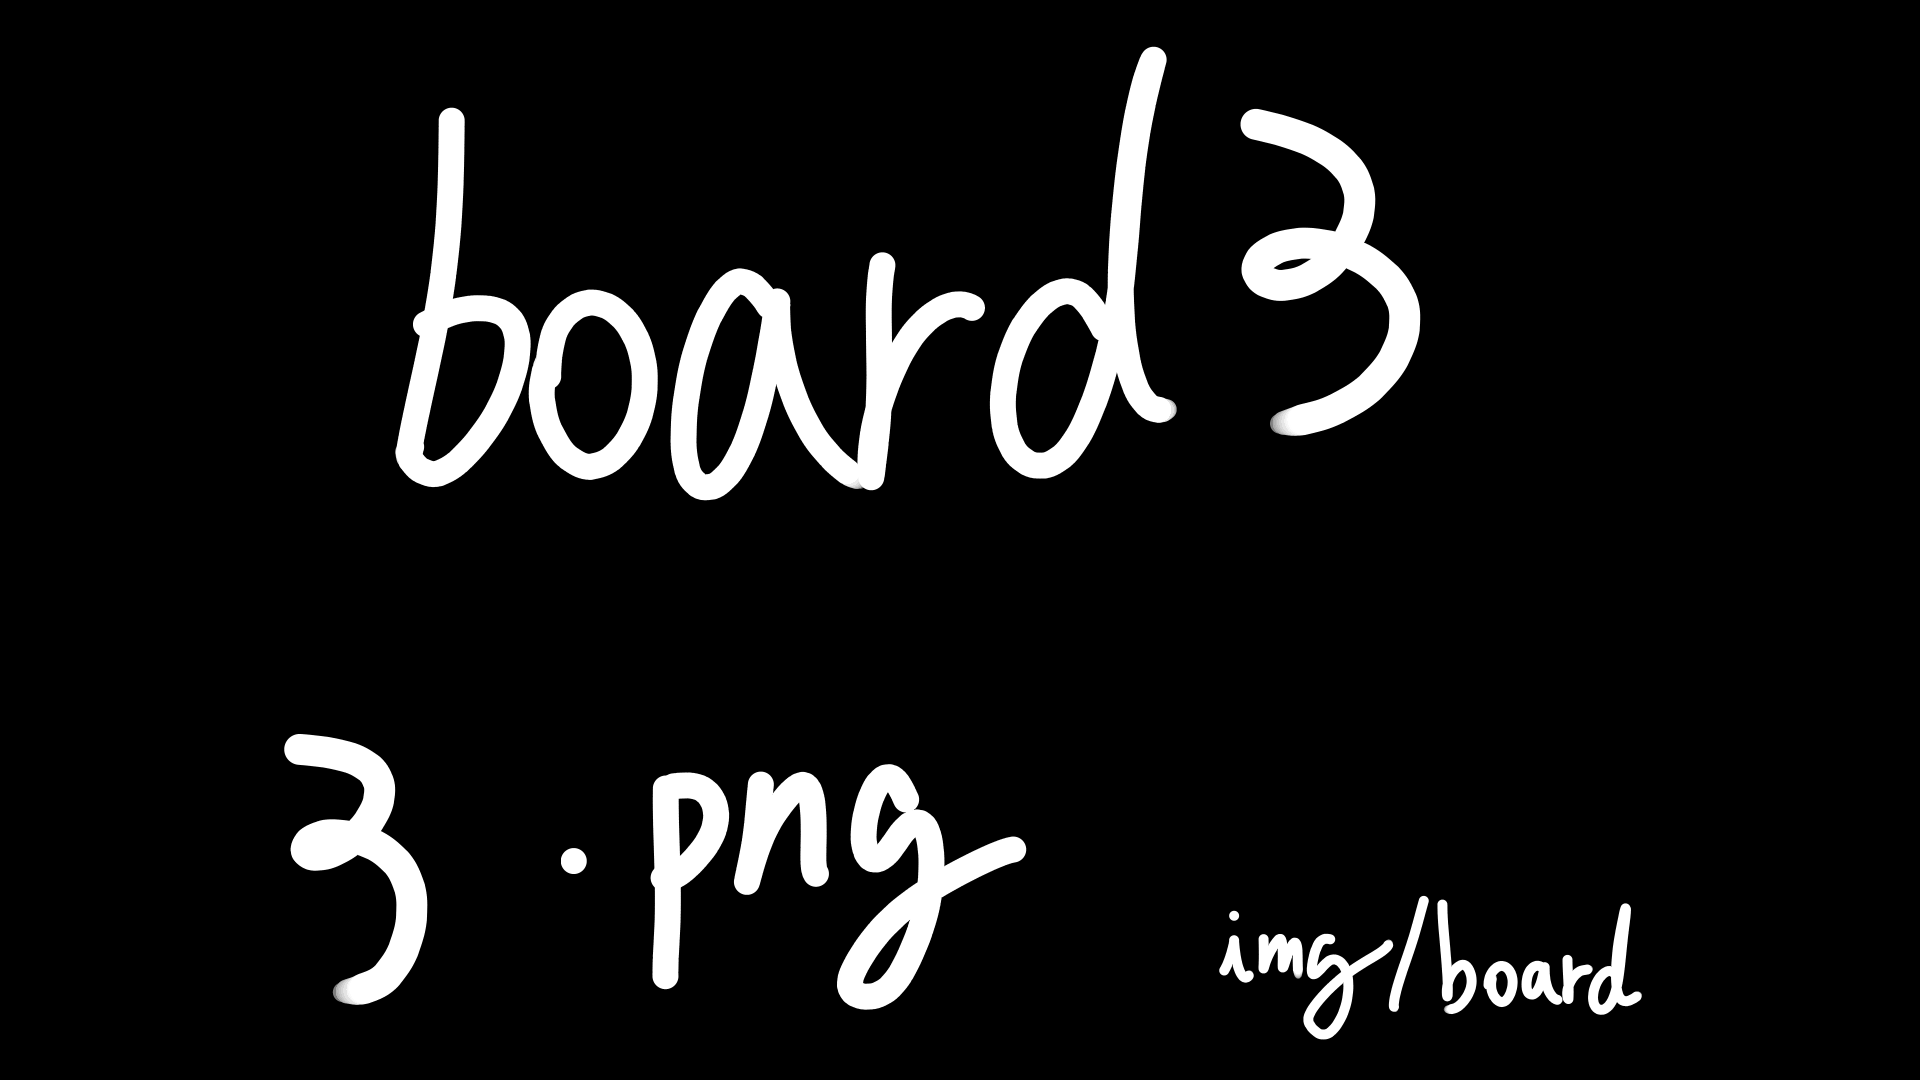 board 3
3 . png
img/board